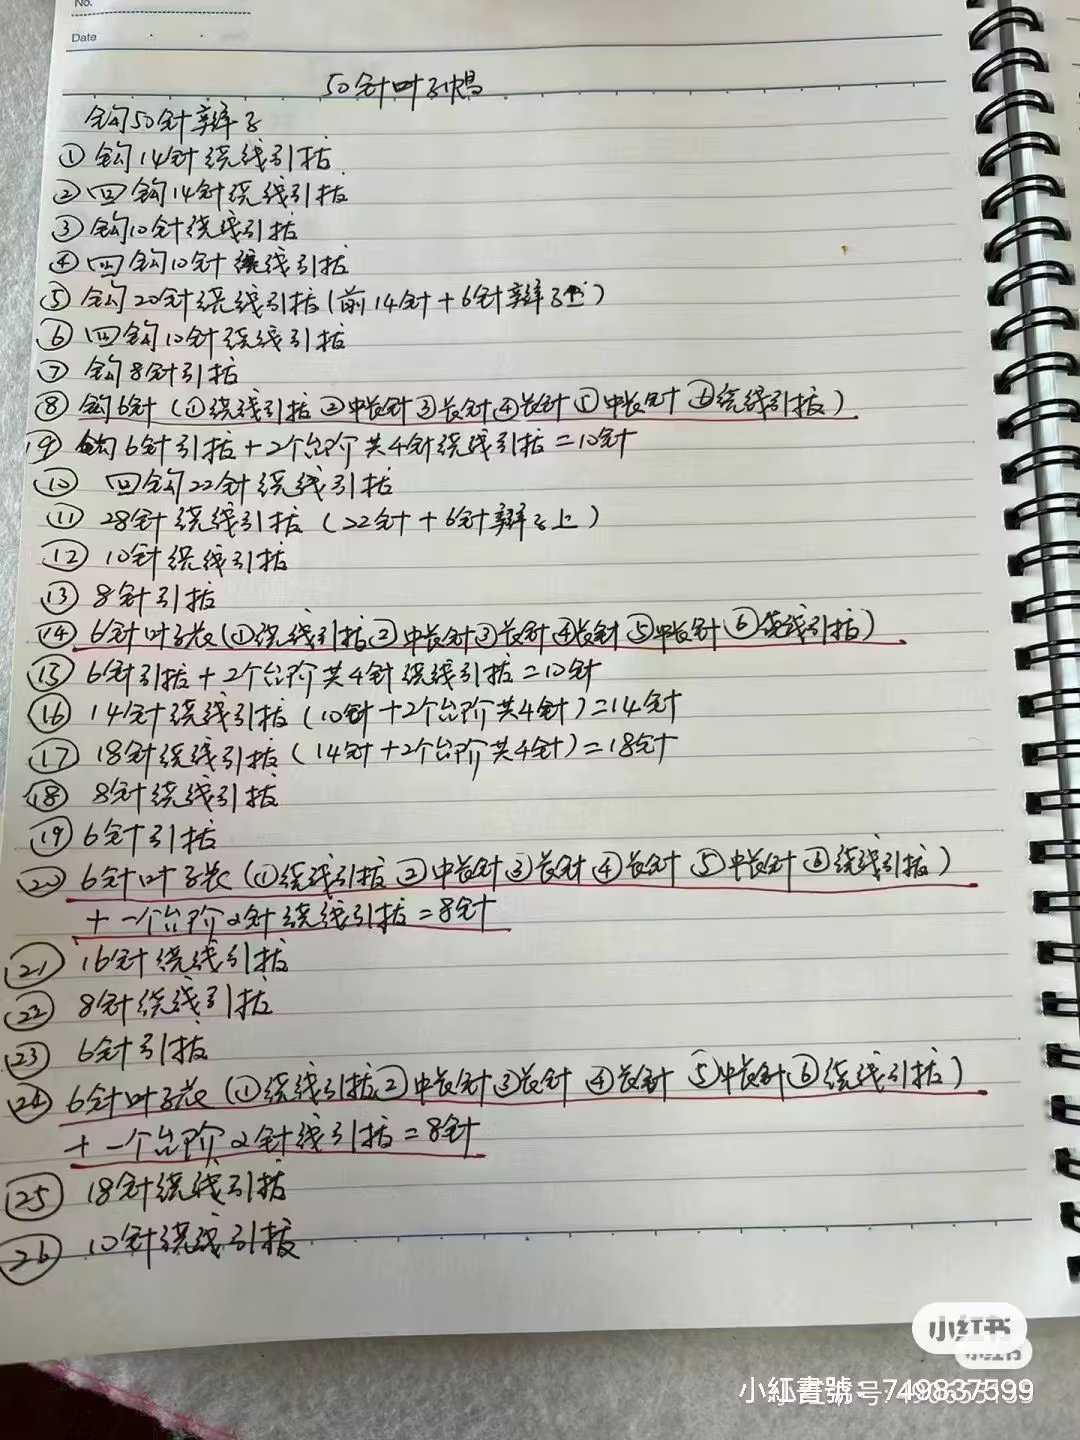 No.
Date
50针叶子帽
钩50针辫子
① 钩14针绕线引拔
② 回钩14针绕线引拔
③ 钩10针绕线引拔
④ 回钩10针绕线引拔
⑤ 钩20针绕线引拔(前14针+6针辫子上)
⑥ 回钩10针绕线引拔
⑦ 钩8针引拔
⑧ 钩6针(①绕线引拔②中长针③长针④长针⑤中长针⑥绕线引拔)
⑲ 钩6针引拔+2个台阶共4针绕线引拔=10针
⑩ 回钩22针绕线引拔
⑪ 28针绕线引拔(22针+6针辫子上)
⑫ 10针绕线引拔
⑬ 8针引拔
⑭ 6针叶子花(①绕线引拔②中长针③长针④长针⑤中长针⑥绕线引拔)
⑮ 6针引拔+2个台阶共4针绕线引拔=10针
⑯ 14针绕线引拔(10针+2个台阶共4针)=14针
⑰ 18针绕线引拔(14针+2个台阶共4针)=18针
⑱ 8针绕线引拔
⑲ 6针引拔
⑳ 6针叶子花(①绕线引拔②中长针③长针④长针⑤中长针⑥绕线引拔)
+一个台阶2针绕线引拔=8针
㉑ 16针绕线引拔
㉒ 8针绕线引拔
㉓ 6针引拔
㉔ 6针叶子花(①绕线引拔②中长针③长针④长针⑤中长针⑥绕线引拔)
+一个台阶2针线引拔=8针
㉕ 18针绕线引拔
㉖ 10针绕线引拔
小红书
小红书
小紅書號:749837599